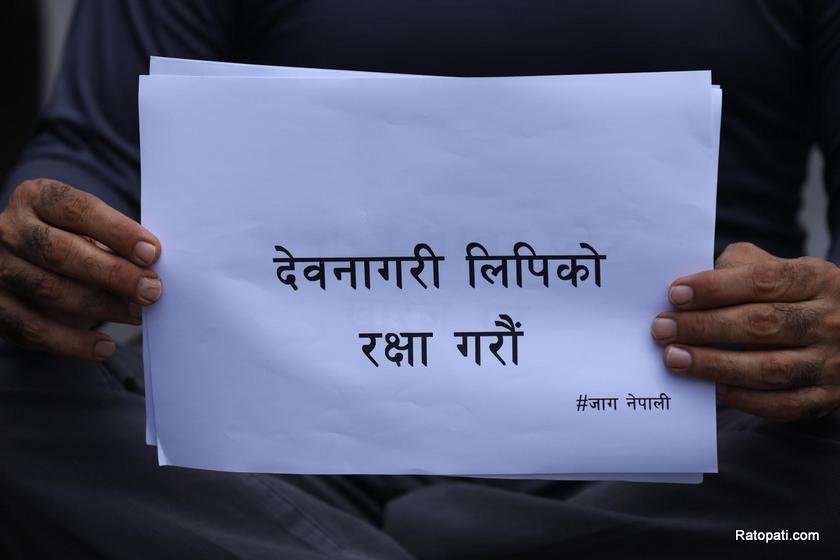 देवनागरी लिपिको
रक्षा गरौं
#जाग नेपाली
Ratopati.com